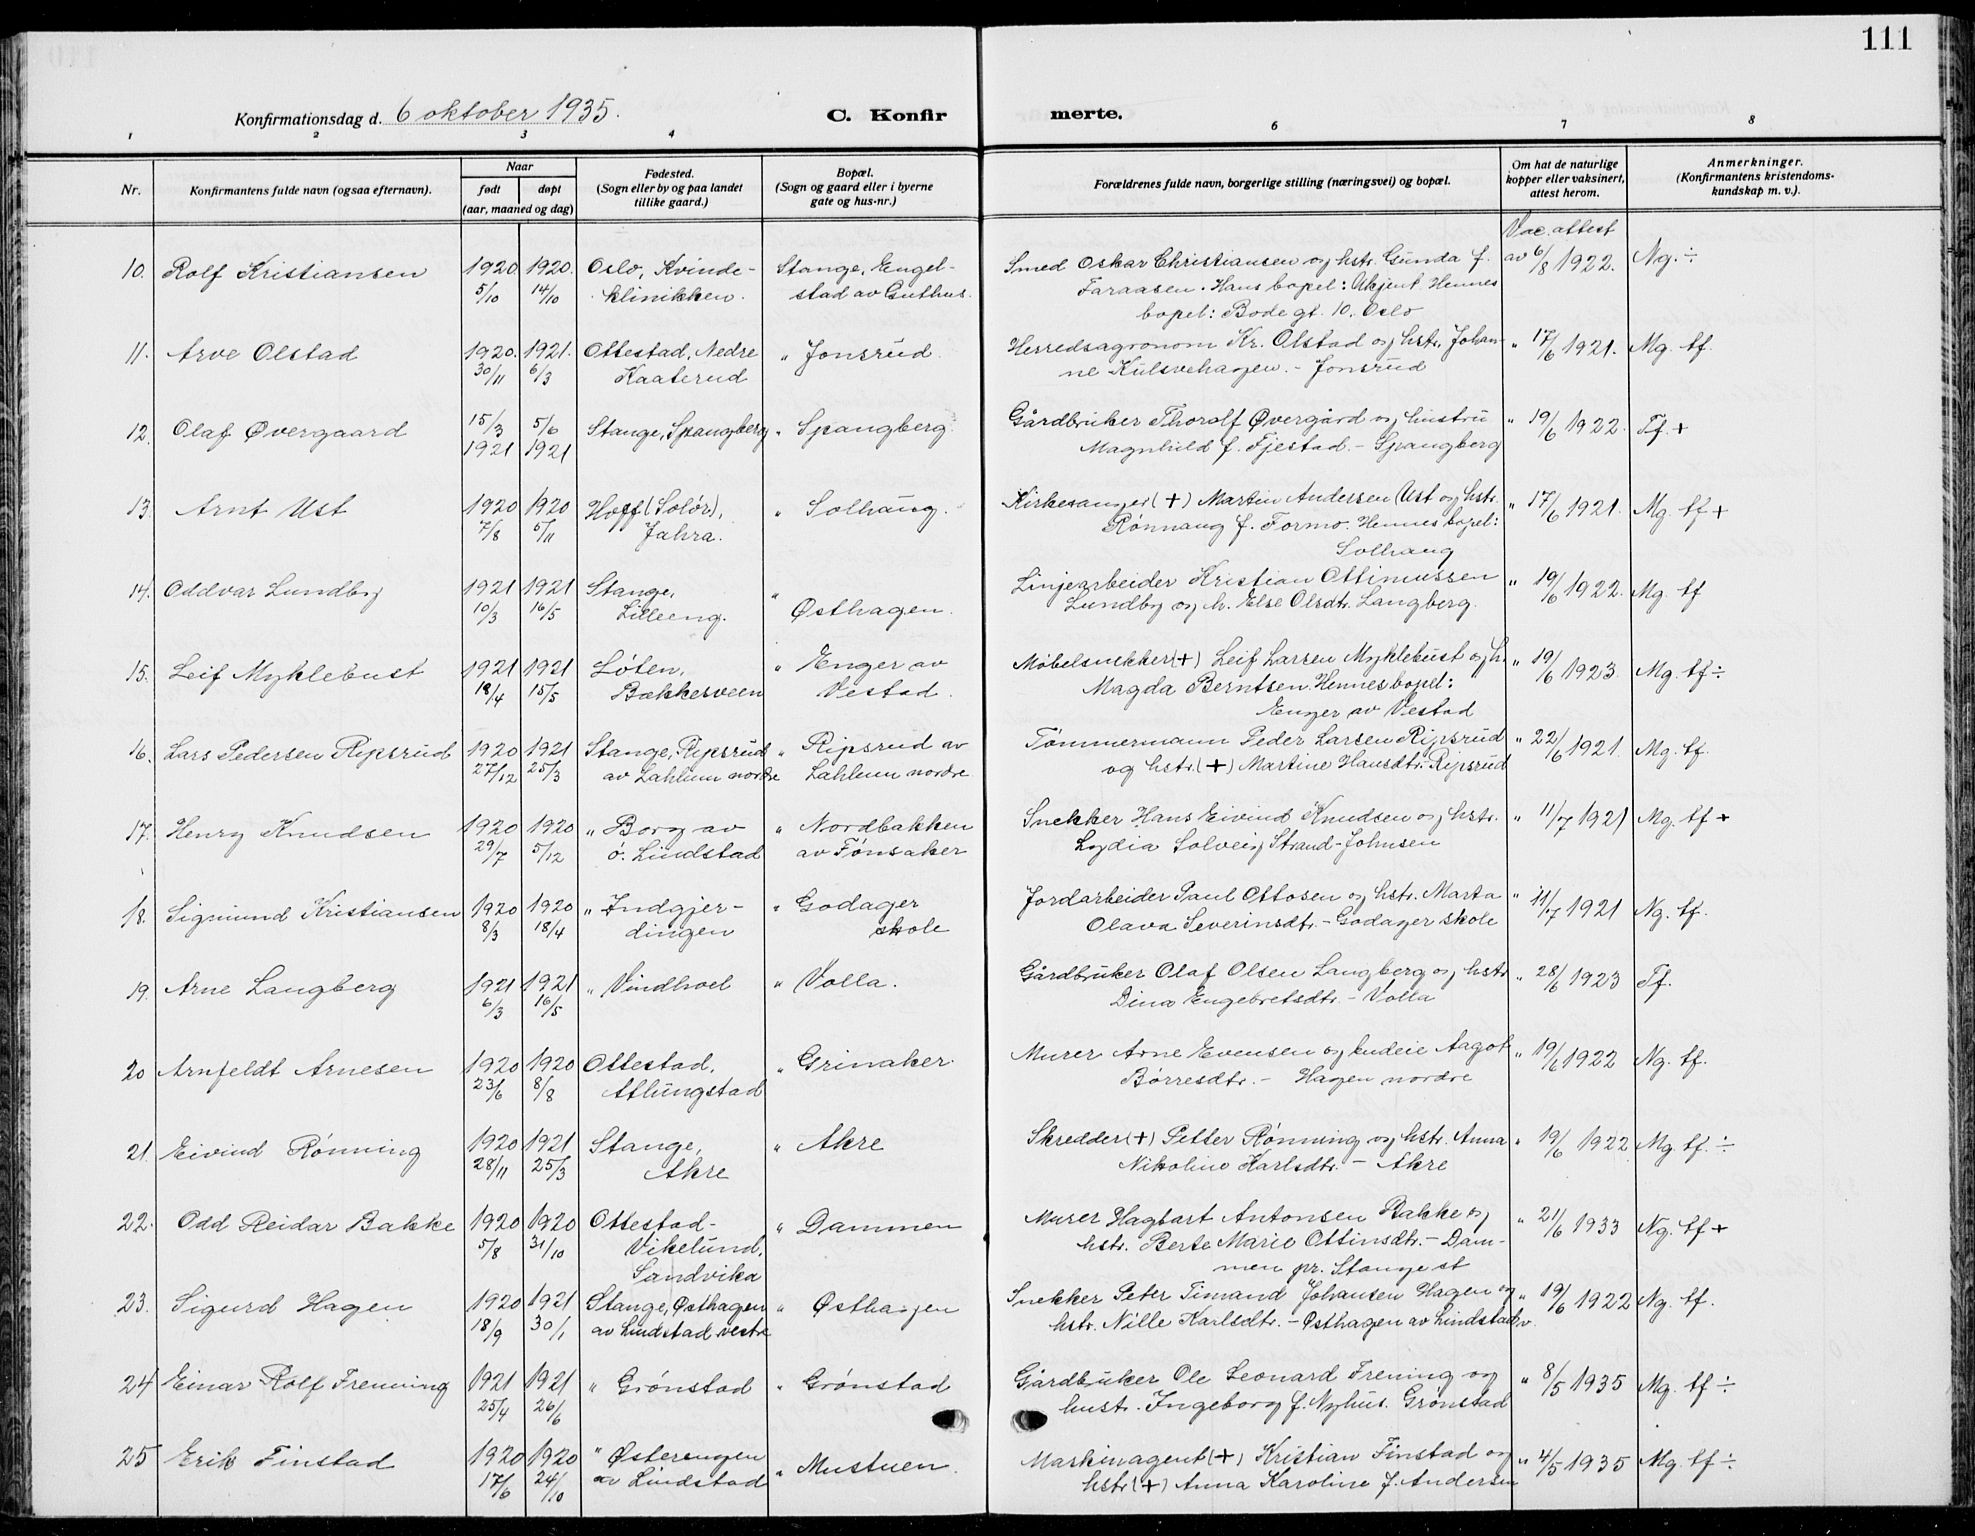 111
Konfirmationsdag d. 6 oktober 1935.
C. Konfirmerte.
1 2 3 4 6 7 8
Nr.
Konfirmantens fulde navn (ogsaa efternavn).
Naar
født døpt
(aar, maaned og dag)
Fødested.
(Sogn eller by og paa landet
tillike gaard.)
Bopæl.
(Sogn og gaard eller i byerne
gate og hus-nr.)
Forældrenes fulde navn, borgerlige stilling (næringsvei) og bopæl.
Om hat de naturlige
kopper eller vaksinert,
attest herom.
Anmerkninger.
(Konfirmantens kristendoms-
kundskap m. v.).
Vac. attest
10. Rolf Kristiansen 1920. 1920. Oslo, Kvinde- Stange, Engel- Smed Oskar Christiansen og hstr. Gunda f. av 6/8 1922. Ng. ÷
5/10 14/10 klinikken. stad av Guthus. Faraasen. Hans bopel: Ukjent Hennes
bopel: Bode gt. 10. Oslo
11. Arve Olstad 1920. 1921. Ottestad, Nedre " Jonsrud. Herredsagronom Kr. Olstad og hstr. Johan- " 17/6 1921. Mg. tf.
30/11 6/3 Kaaterud ne Kulsvehagen. - Jonsrud
12. Olaf Øvergaard 15/3 5/6 Stange, Spangberg " Spangberg. Gårdbruker Thoralf Øvergård og hustru " 19/6 1922. Tf. +
1921 1921 Magnhild f. Fjestad. - Spangberg
13. Arnt Ust 1920 1920 Hoff (Solør), " Solhaug. Kirkesanger (+) Martin Andersen Ust og hstr. " 17/6 1921. Mg. tf +
7/8 6/11 Jahra. Rønnaug f. Formo. Hennes bopel:
Solhaug
14. Oddvar Lundby 1921 1921 Stange, " Linjearbeider Kristian Ottimussen " 19/6 1922. Mg. tf
10/3 16/5 Lilleeng. Østhagen. Lundby og h. Else Olsdtr. Langberg.
15. Leif Myklebust 1921 1921 Løten, " Enger av Møbelsnekker (+) Leif Larsen Myklebust og h. " 19/6 1923. Mg. tf ÷
18/4 15/5 Bakkerveen Vestad. Magda Berntsen. Hennes bopel:
Enger av Vestad
16. Lars Pedersen Ripsrud 1920 1921 Stange, Ripsrud " Ripsrud av Tømmermann Peder Larsen Ripsrud " 22/6 1921. Mg. tf.
27/12 25/3 av Lahlum nordre Lahlum nordre og hstr. (+) Martine Hansdtr. Ripsrud
17. Henry Knudsen 1920 1920 " Borg av " Nordbakken Snekker Hans Eivind Knudsen og hstr. " 11/7 1921 Mg. tf +
29/7 5/12 ö. Lindstad av Fønsaker Lydia Solveig Strand-Johnsen
18. Sigmund Kristiansen 1920 1920 " Indgjer- " Godager Jordarbeider Paul Ottosen og hstr. Marta " 11/7 1921 Ng. tf.
8/3 18/4 dingen skole Olava Severinsdtr. - Godager skole
19. Arne Langberg 1921 1921 " Vindhoel " Volla. Gårdbruker Olaf Olsen Langberg og hstr " 28/6 1923 Tf.
6/3 16/5 Dina Engebretsdtr. - Volla
20 Arnfeldt Arnesen 1920 1920 Ottestad, " Grinaker. Murer Arne Evensen og Aagot " 19/6 1922 Ng. tf.
23/6 8/8 Atlungstad Børresdtr. - Hagen nordre
21. Eivind Rønning 1920 1921 Stange, " Akre Skredder (+) Petter Rønning og hstr. Anna " 19/6 1922. Mg. tf. ÷
28/11 25/3 Akre Nikoline Karlsdtr. - Akre
22. Odd Reidar Bakke 1920 1920 Ottestad- " Dammen Murer Hagbart Antonsen Bakke og " 21/6 1933 Ng. tf +
5/8 31/10 Vikelund, hstr. Berte Marie Ottinsdtr. - Dam-
Sandvika men pr. Stange st
23. Sigurd Hagen 1920 1921 Stange, Østhagen " Østhagen Snekker Peter Timand Johansen Hagen og " 19/6 1922 Ng. tf.
18/9 30/1 av Lindstad vestre hstr. Nille Karlsdtr. - Østhagen av Lindstad v.
24 Einar Rolf Frenning 1921 1921 " Grønstad " Grønstad Gårdbruker Ole Leonard Frening og " 8/5 1935 Mg. tf ÷
25/4 26/6 hustr. Ingeborg f. Nyhus. Grønstad
25 Erik Finstad 1920 1920 " Østerengen " Mustuen. Markinagent (+) Kristian Finstad og " 4/5 1935 Mg. tf ÷
17/6 24/10 av Lindstad hstr (+) Anna Karoline f. Andersen